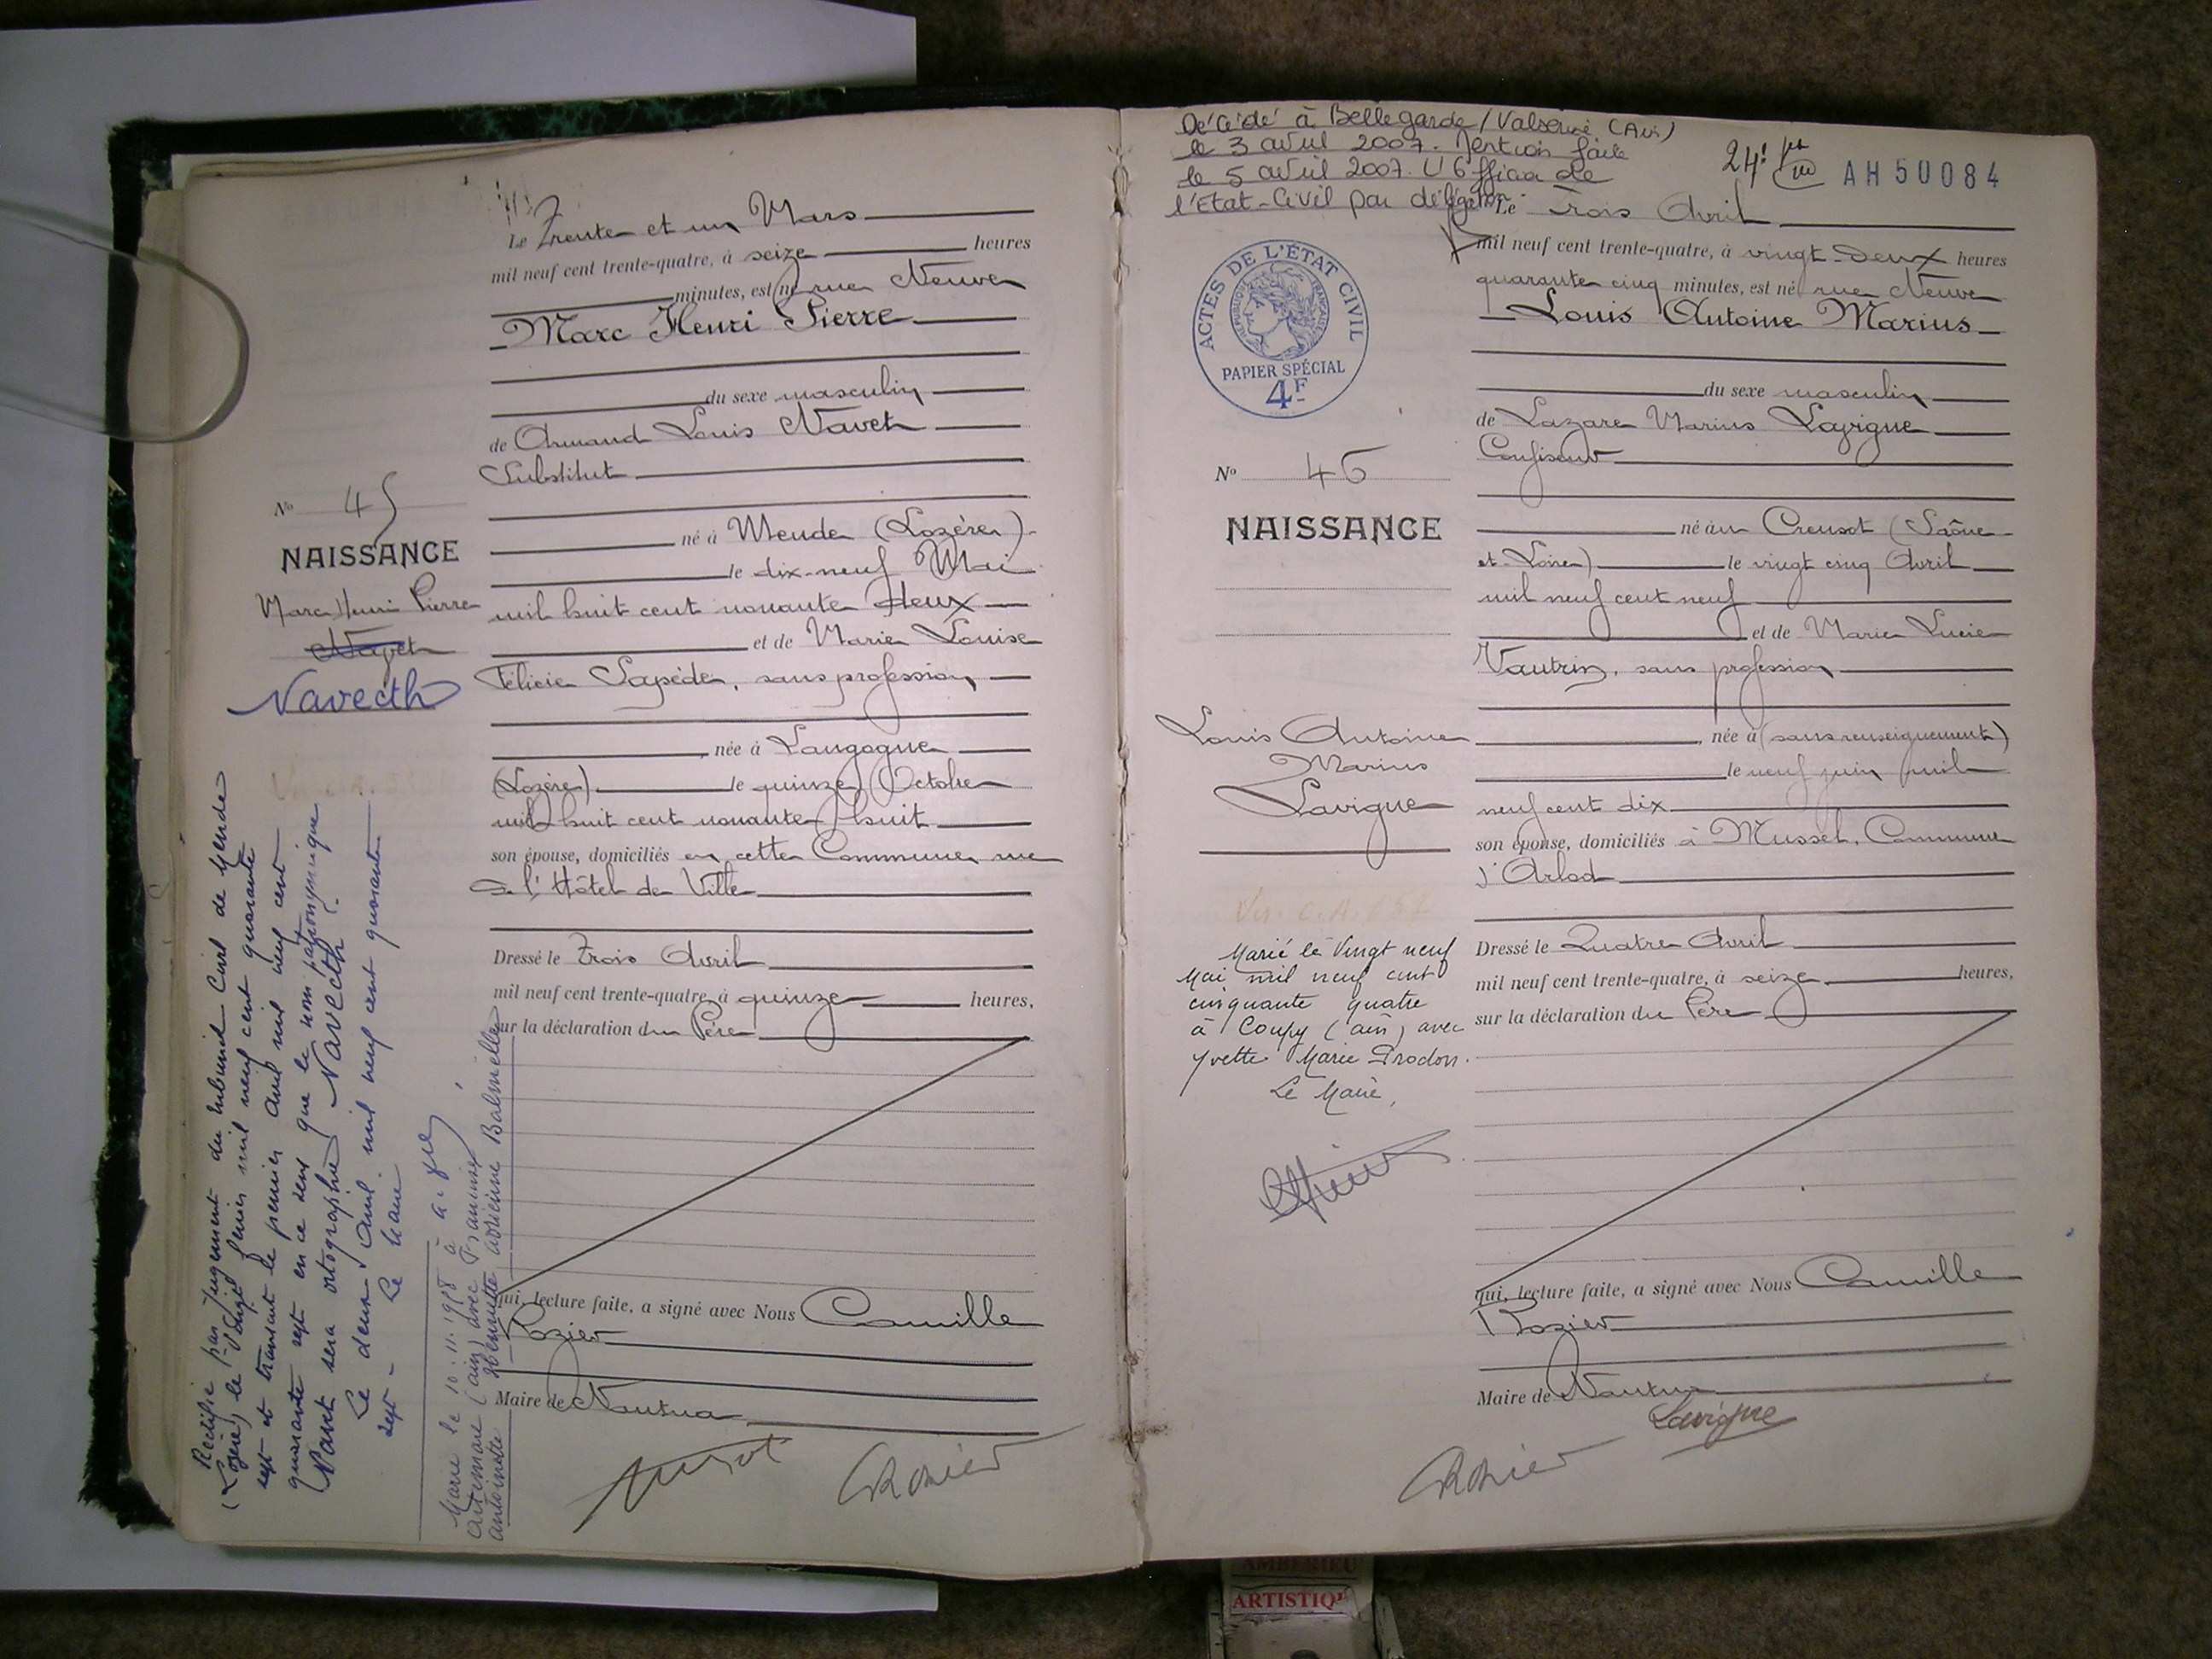 Le Trente et un Mars
mil neuf cent trente-quatre, à seize heures
minutes, est né rue Neuve
Marc Henri Pierre
du sexe masculin
de Armand Louis Navet
Substitut
né à Mende (Lozère)
le dix-neuf Mai
mil huit cent nonante deux
et de Marie Louise
Félicie Sapède, sans profession
née à Langogne
(Lozère) le quinze Octobre
mil huit cent nonante huit
son épouse, domiciliés en cette Commune, rue
de l'Hôtel de Ville
Dressé le Trois Avril
mil neuf cent trente-quatre, à quinze heures,
sur la déclaration du Père
qui, lecture faite, a signé avec Nous Camille
Rozier
Maire de Nantua
Rozier
No 45
NAISSANCE
Marc Henri Pierre
Navet
Navecth
Rectifié par jugement du tribunal Civil de Mende
(Lozère) le Vingt février mil neuf cent quarante
sept et transcrit le premier Avril mil neuf cent
quarante sept en ce sens que le nom patronymique
Navet sera ortographié NAVECTH.
Le deux Avril mil neuf cent quarante
sept - Le Maire
Marié le 10.11.1958 à
Artemare (ain) avec Francine
antoinette Henriette adrienne Balmelle
Décédé à Bellegarde/Valserine (Ain)
le 3 avril 2007. Mention faite
le 5 avril 2007. L'Officier de
l'Etat-Civil par délégation.
24e
AH 50084
ACTES DE L'ÉTAT CIVIL
RÉPUBLIQUE FRANÇAISE
PAPIER SPÉCIAL
4F
Le Trois Avril
mil neuf cent trente-quatre, à vingt-deux heures
quarante cinq minutes, est né rue Neuve
Louis Antoine Marius
du sexe masculin
de Lazare Marius Lavigne
Confiseur
né au Creusot (Saône-
et-Loire) le vingt cinq Avril
mil neuf cent neuf
et de Marie Lucie
Vautrin, sans profession
née à (sans renseignement)
le neuf juin mil
neuf cent dix
son épouse, domiciliés à Mussel, Commune
d'Arlod
Dressé le Quatre Avril
mil neuf cent trente-quatre, à seize heures,
sur la déclaration du Père
qui, lecture faite, a signé avec Nous Camille
Rozier
Maire de Nantua
Lavigne
Rozier
No 46
NAISSANCE
Louis Antoine
Marius
Lavigne
Marié le Vingt neuf
Mai mil neuf cent
cinquante quatre
à Coupy (ain) avec
Yvette Marie Prodon.
Le Maire,
AMBERIEU
ARTISTIQ